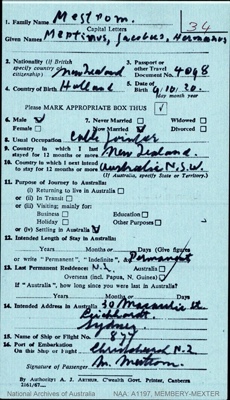 1. Family Name Mestrom.
Capital Letters
34
Given Names Meptinus, Jacobus, Hermanus
2. Nationality (if British specify country of citizenship) New Zealand
3. Passport or other Travel Document No. 4048
4. Country of Birth Holland
5. 9.10.20.
day month year
Please MARK APPROPRIATE BOX THUS ✓
6. Male ✓
Female
7. Never Married
Now Married ✓
Widowed
Divorced
8. Usual Occupation
9. Country in which I last stayed for 12 months or more New Zealand.
10. Country in which I next intend to stay for 12 months or more Australia N.S.W.
(If Australia, specify State or Territory).
11. Purpose of Journey to Australia:
or (i) Returning to live in Australia
or (ii) In Transit
or (iii) Visiting; mainly for:
Business
Education
Holiday
Other Purposes
or (iv) Settling in Australia ✓
12. Intended Length of Stay in Australia:
Years Months Days (Give figures
or write "Permanent", "Indefinite", as Permanent
13. Last Permanent Residence: N.Z. Australia
Overseas (incl. Papua, N. Guinea)
If "Australia", how long since you were last in Australia?
Years Months Days
14. Intended Address in Australia 30
Leichhardt.
Sydney
15. Name of Ship or Flight No. 877
16. Port of Embarkation On this Ship or Flight Christchurch N.Z.
Signature of Passenger M. Mestrom.
By Authority: A. J. Arthur, C'wealth Govt. Printer, Canberra
2161/67
National Archives of Australia
NAA: A1197, MEMBERY-MEXTER